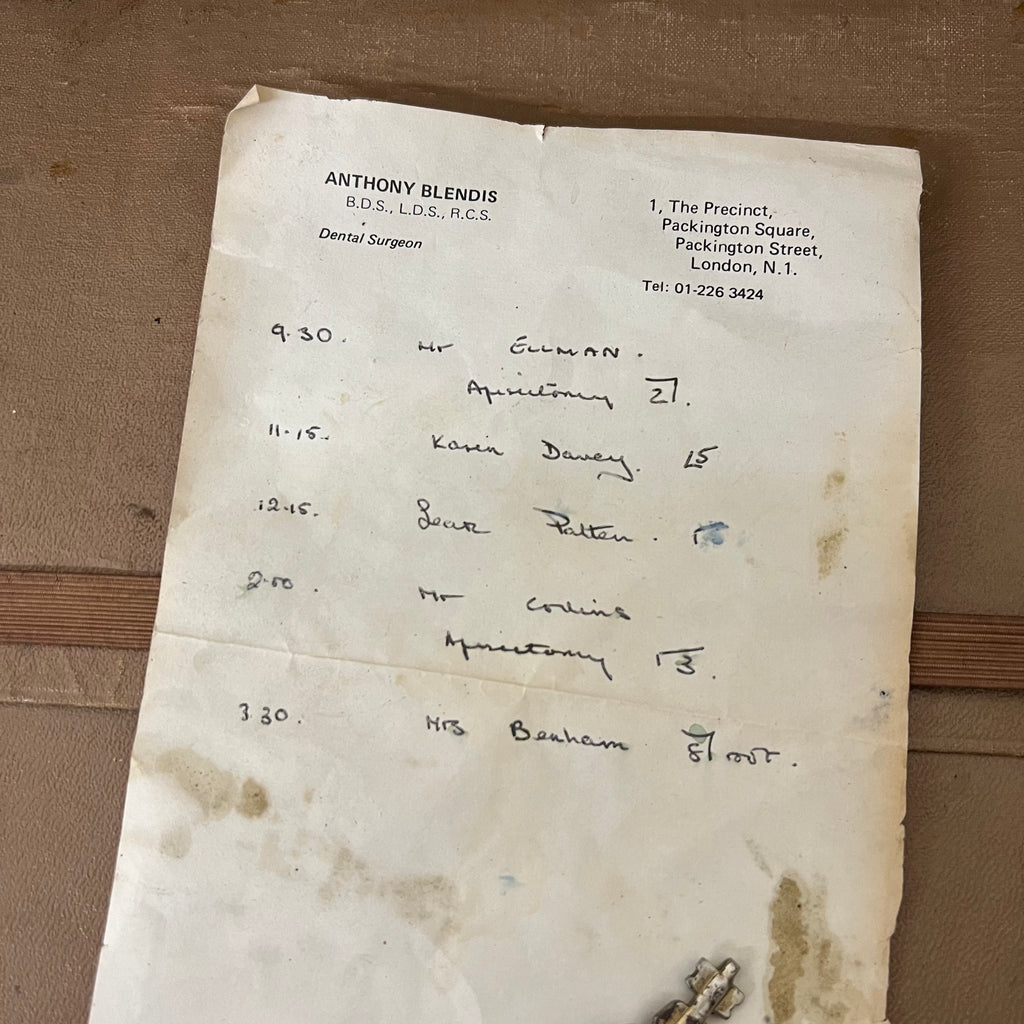 ANTHONY BLENDIS
B.D.S., L.D.S., R.C.S.
Dental Surgeon
1, The Precinct,
Packington Square,
Packington Street,
London, N.1.
Tel: 01-226 3424
9.30. Mr ELLMAN.
Apisectomy 2.
11.15. Karen Davey. 5
12.15. Patten.
2.00. Mr Collins
Apisectomy 3.
3.30. Mrs Benham 8 root.